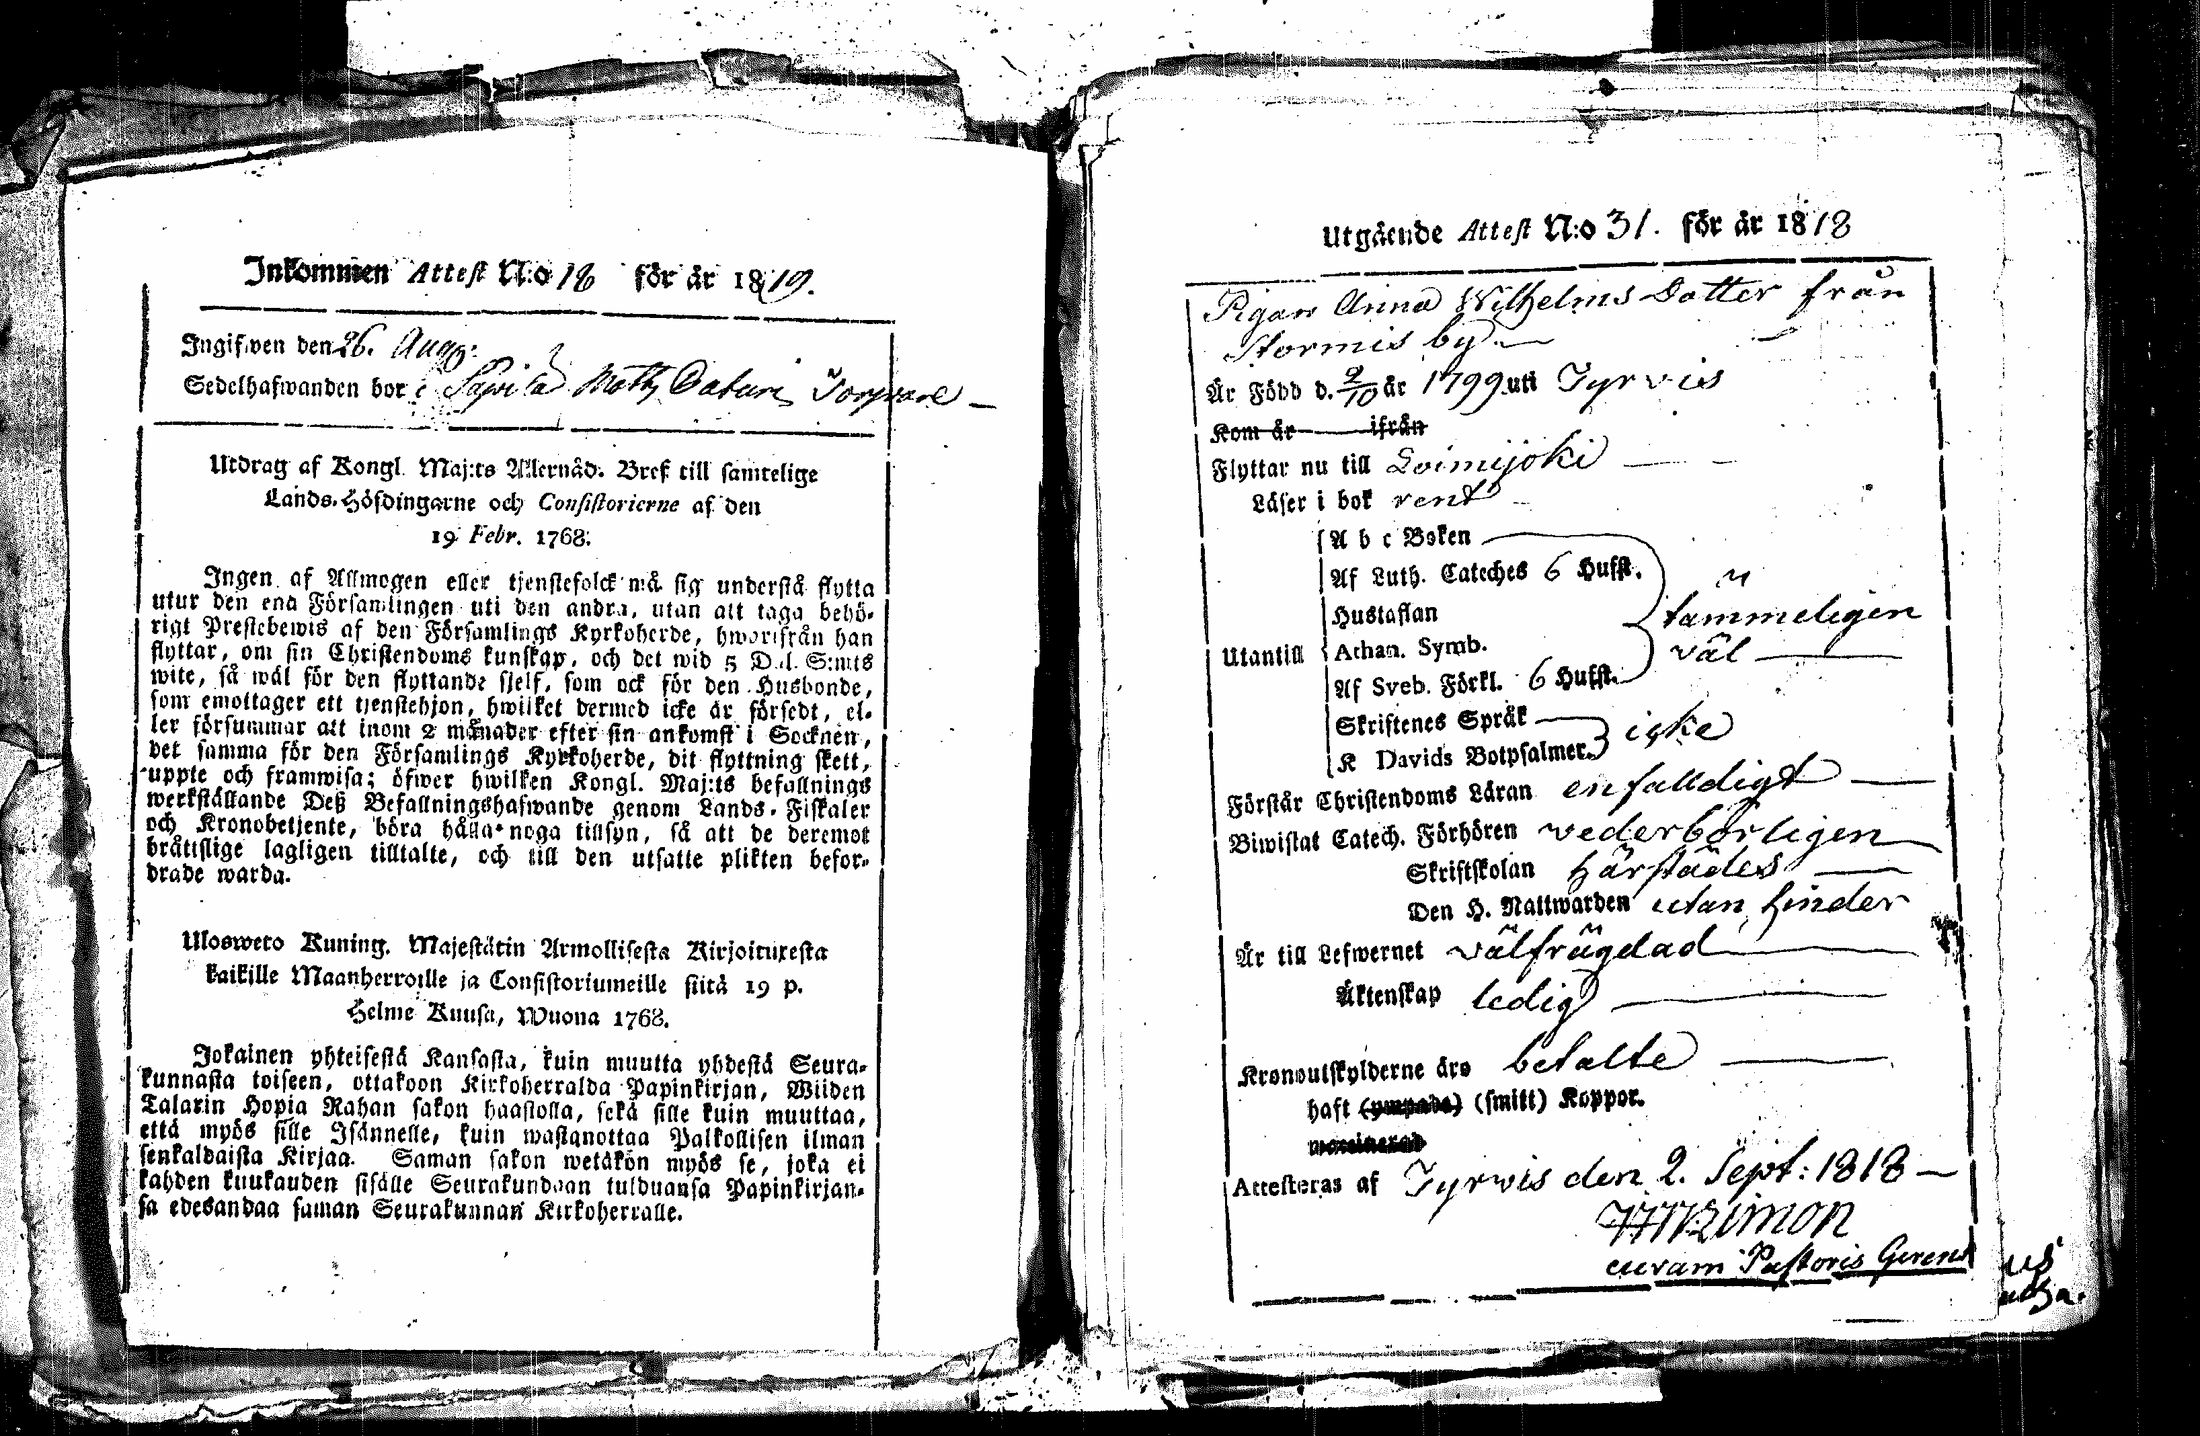 Inkommen Attest N:o 18 för år 1819.
Ingifwen den 26. Aug:
Sedelhafwanden bor i
Utdrag af Kongl. Maj:ts Allernåd. Bref till samtelige
Lands-Höfdingarne och Consistorierne af den
19 Febr. 1768.
Ingen af Allmogen eller tjenstefolck må sig understå flytta
utur den ena Församlingen uti den andra, utan att taga behö-
rigt Prestebewis af den Församlings Kyrkoherde, hworifrån han
flyttar, om sin Christendoms kunskap, och det wid 5 Dal. S:mts
wite, så wäl för den flyttande sjelf, som ock för den Husbonde,
som emottager ett tjenstehjon, hwilket dermed icke är försedt, el-
ler försummar att inom 2 månader efter sin ankomst i Socknen,
det samma för den Församlings Kyrkoherde, dit flyttning skett,
uppte och framwisa; öfwer hwilken Kongl. Maj:ts befallnings
werkställande Deß Befallningshafwande genom Lands-Fiskaler
och Kronobetjente, böra hålla noga tillsyn, så att de deremot
bråttslige lagligen tilltalte, och till den utsatte plikten befor-
drade warda.
Ulosweto Kuning. Majestätin Armollisesta Kirjoituxesta
kaikille Maanherroille ja Consistoriumeille siitä 19 p.
Helme Kuusa, Wuona 1768.
Jokainen yhteisestä Kansasta, kuin muutta yhdestä Seura-
kunnasta toiseen, ottakoon Kirkoherralda Papinkirjan, Wiiden
Talarin Hopia Rahan sakon haastolla, sekä sille kuin muuttaa,
että myös sille Isännelle, kuin wastanottaa Palkollisen ilman
senkaldaista Kirjaa. Saman sakon wetäkön myös se, joka ei
kahden kuukauden sisälle Seurakundaan tulduansa Papinkirjan-
sa edesandaa saman Seurakunnan Kirkoherralle.
Utgående Attest N:o 31. för år 1818
Pigan Anna Wilhelms Dotter från
Stormis by
Är Född d. 2/10 år 1799 uti Tyrvis
Kom år ifrån
Flyttar nu till Loimijoki
Läser i bok rent
Utantill
A b c Boken
Af Luth. Cateches 6 Hufst.
Hustaflan
Athan. Symb.
Af Sveb. Förkl. 6 Hufst.
tämmeligen
väl
Skriftenes Språk
K Davids Botpsalmer.
icke
Förstår Christendoms Läran enfalldigt
Biwistat Catech. Förhören vederbörligen
Skriftskolan härstädes
Den H. Nattwarden utan hinder
Är till Lefwernet välfrägdad
Äktenskap ledig
Kronoutskylderne äro betalte
haft (ympade) (smitt) Koppor.
Attesteras af Tyrvis den 2. Sept: 1818
curam Pastoris Gerens